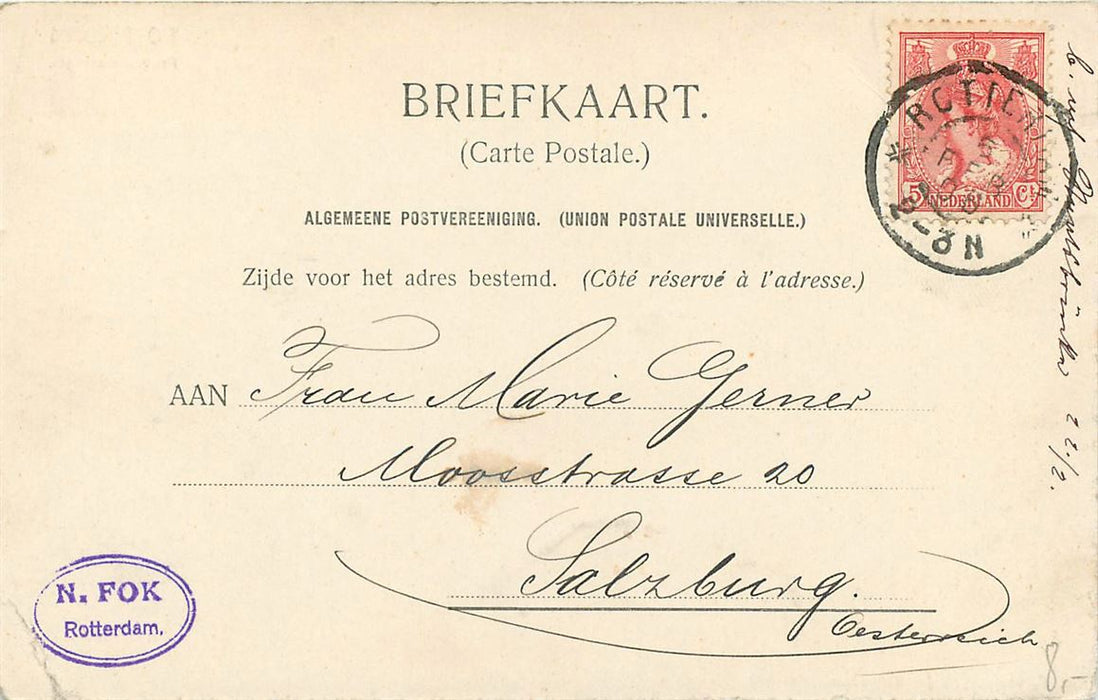 BRIEFKAART.
(Carte Postale.)
ALGEMEENE POSTVEREENIGING. (UNION POSTALE UNIVERSELLE.)
Zijde voor het adres bestemd. (Côté réservé à l'adresse.)
AAN Frau Marie Gerner
Moosstrasse 20
Salzburg.
Oesterreich
N. FOK
Rotterdam.
5 NEDERLAND Ct
2-3N
22/2.
8,-